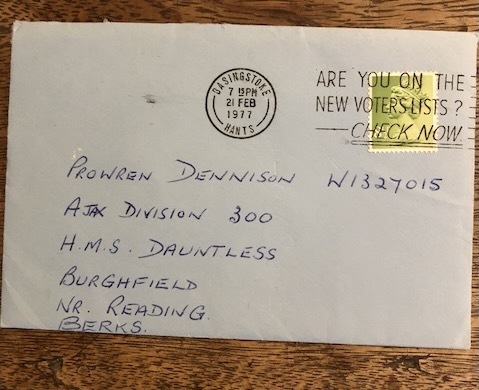 BASINGSTOKE
7 15 PM
21 FEB
1977
HANTS
ARE YOU ON THE
NEW VOTERS LISTS ?
CHECK NOW
PROWREN DENNISON W1327015
AJAX DIVISION 300
H.M.S. DAUNTLESS
BURGHFIELD
NR. READING.
BERKS.